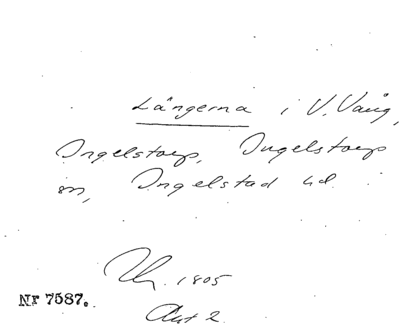 Längerna i V. Vång,
Ingelstorp, Ingelstorp
sn, Ingelstad hd.
Uk. 1805
Akt 2
Nr 7587.